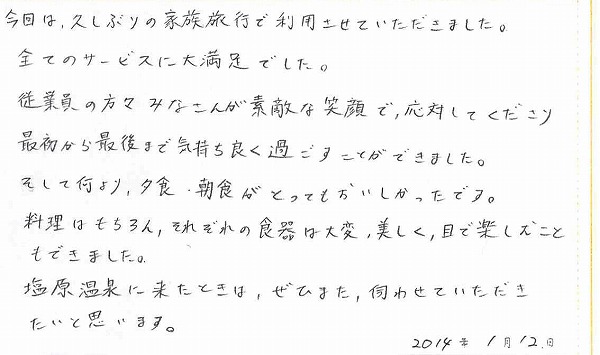 今回は、久しぶりの家族旅行で利用させていただきました。
全てのサービスに大満足でした。
従業員の方々みなさんが素敵な笑顔で、応対してくださり
最初から最後まで気持ち良く過ごすことができました。
そして何より、夕食・朝食がとってもおいしかったです。
料理はもちろん、それぞれの食器は大変、美しく、目で楽しむこと
もできました。
塩原温泉に来たときは、ぜひまた、伺わせていただき
たいと思います。
2014年 1月12日